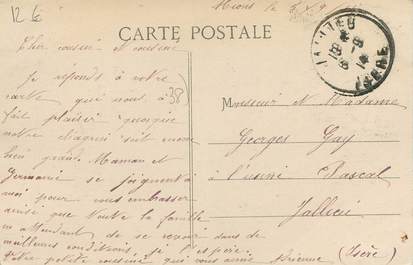 12 €
Mions le
CARTE POSTALE
JALLIEU
ISERE
Cher cousin et cousine
Je réponds à votre
carte qui nous a
38
fait plaisir quoique
notre chagrin soit encore
bien grand. Maman et
Germaine se joignent à
moi pour vous embrasser
ainsi que toute la famille
en attendant de se revoir dans de
meilleures conditions, je l'espère.
Votre petite cousine qui vous aime
Monsieur et Madame
Georges Gay
à l'usine Pascal
Jallieu
(Isère)